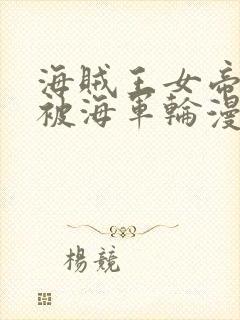 海賊王女帝
被海軍輪漫
楊競